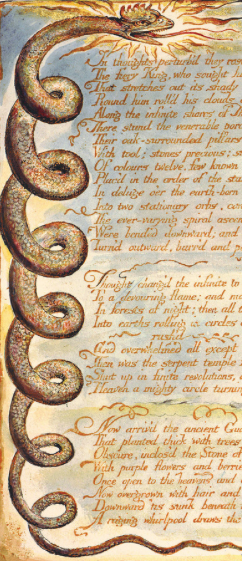 In thoughts perturb'd they rose
The fiery King, who sought his
That stretches out its shady
Round him roll'd his clouds
Along the infinite shores of
There stand the venerable por
Their oak-surrounded pillars
With tool; stones precious; s
Of colours twelve, few known
Plac'd in the order of the sta
deluge o'er the earth-born
Into two stationary orbs, con
The ever-varying spiral ascen
Were bended downward, and
Turn'd outward, barr'd and p
Thought chang'd the infinite to
To a devouring flame; and m
In forests of night; then all t
Into earths rolling in circles
rush'd
And overwhelmed all except
Then was the serpent temple
Shut up in finite revolutions,
Heaven a mighty circle turnin
Now arriv'd the ancient Gua
That planted thick with trees
Obscure, inclos'd the Stone of
With purple flowers and berri
Once open to the heavens and
Now overgrown with hair and
Downward 'tis sunk beneath
A raging whirlpool draws th